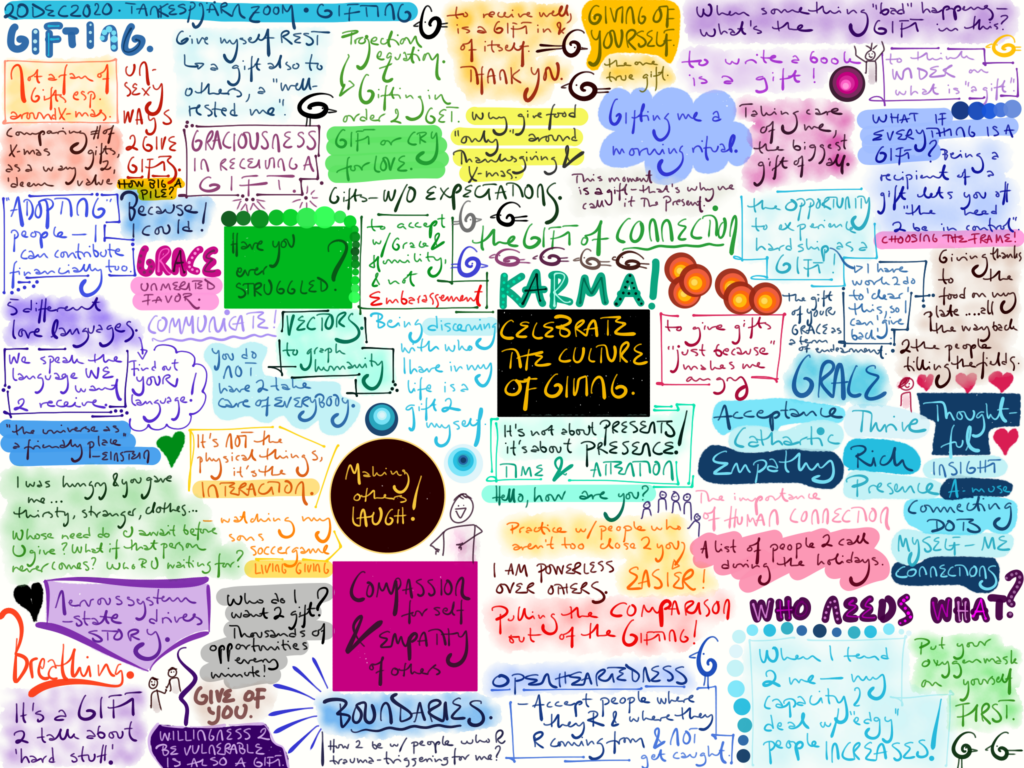 20DEC2020 · TANKESPJÄRN ZOOM · GIFTING
GIFTING.
Not a fan of
Gifts esp.
around X-mas.
UN-
SEXY
WAYS
2 GIVE
GIFTS.
Give myself REST
↳ a gift also to
others, a "well-
rested me".
Projection
equation.
Gifting in
order 2 GET.
to receive well,
is a GIFT in &
of itself.
THANK YOU.
GIVING OF
YOURSELF.
the one
true gift.
When something "bad" happens—
what's the GIFT in this?
to write a book
is a gift!
to think
what is "a gift".
Comparing # of
X-mas gifts,
as a way 2
deem value
HOW BIG A
PILE?
GRACIOUSNESS
IN RECEIVING A
GIFT.
GIFT or CRY
for LOVE.
Why give food
"only" around
Thanksgiving &
X-mas.
Gifting me a
morning ritual.
Taking care
of me,
the biggest
gift of all.
WHAT IF
EVERYTHING IS A
GIFT?
Being a
recipient of a
gift lets you off
"the head
2 be in control"
CHOOSING THE FRAME!
This moment
is a gift–that's why we
call it The Present.
Gifts–W/O EXPECTATIONS.
"ADOPTING"
people – I
can contribute
financially too.
Because I
could!
GRACE
UNMERITED
FAVOR.
Have you
ever
STRUGGLED?
to accept
w/Grace &
Humility,
& not
Embarassement
the GIFT of CONNECTION
the OPPORTUNITY
to experience
hardship as a
GIFT
KARMA!
I have
work 2 do
to "clear"
this, so I
can give
back!
The gift
of YOUR
GRACE as
a form of endearment.
Giving thanks
to the
food on my
plate....all
the way back
2 the people
tilling the fields.
5 different
love languages.
COMMUNICATE!
We speak the
language WE
want
2 receive.
find out
YOUR
language.
VECTORS.
to graph
humanity
You do
NOT
have 2 take
care of EVERYBODY.
Being discerning
with who
I have in my
life is a
gift 2
myself.
CELEBRATE
THE CULTURE
OF GIVING.
to give gifts
"just because"
makes me
angry
GRACE
Acceptance
Cathartic
Empathy
Thrive
Rich
Presence
Thought-
ful
INSIGHT
A-muse
Connecting
DOTS
MYSELF–ME
CONNECTIONS
"the universe as
a friendly place"
–EINSTEIN
It's NOT the
physical things,
it's the
INTERACTION.
Making
others
LAUGH!
It's not about PRESENTS/
it's about PRESENCE!
TIME & ATTENTION
Hello, how are you?
I was hungry & you gave
me...
thirsty, stranger, clothes...
Whose need do U await before
U give? What if that person
never comes? Who R U waiting for?
– watching my
sons
soccergame
LIVING GIVING
Practice w/people who
aren't too close 2 you
EASIER!
The importance
of HUMAN CONNECTION
A list of people 2 call
during the holidays.
I AM POWERLESS
OVER OTHERS.
Pulling the COMPARISON
out of the GIFTING!
WHO NEEDS WHAT?
Nervous system
-state drives
STORY.
Breathing.
It's a GIFT
2 talk about
'hard stuff'.
Who do I
want 2 gift?
Thousands of
opportunities
every
minute!
GIVE OF
YOU.
WILLINGNESS 2
BE VULNERABLE
IS ALSO A GIFT.
COMPASSION
for self
& EMPATHY
of others
BOUNDARIES.
How 2 be w/ people who R
trauma-triggering for me?
OPENHEARTEDNESS
– Accept people where
they R & where they
R coming from & NOT
get caught.
When I tend
2 me – my
capacity 2
deal w/ "edgy"
people INCREASES!
Put your
oxygenmask
on yourself
FIRST.